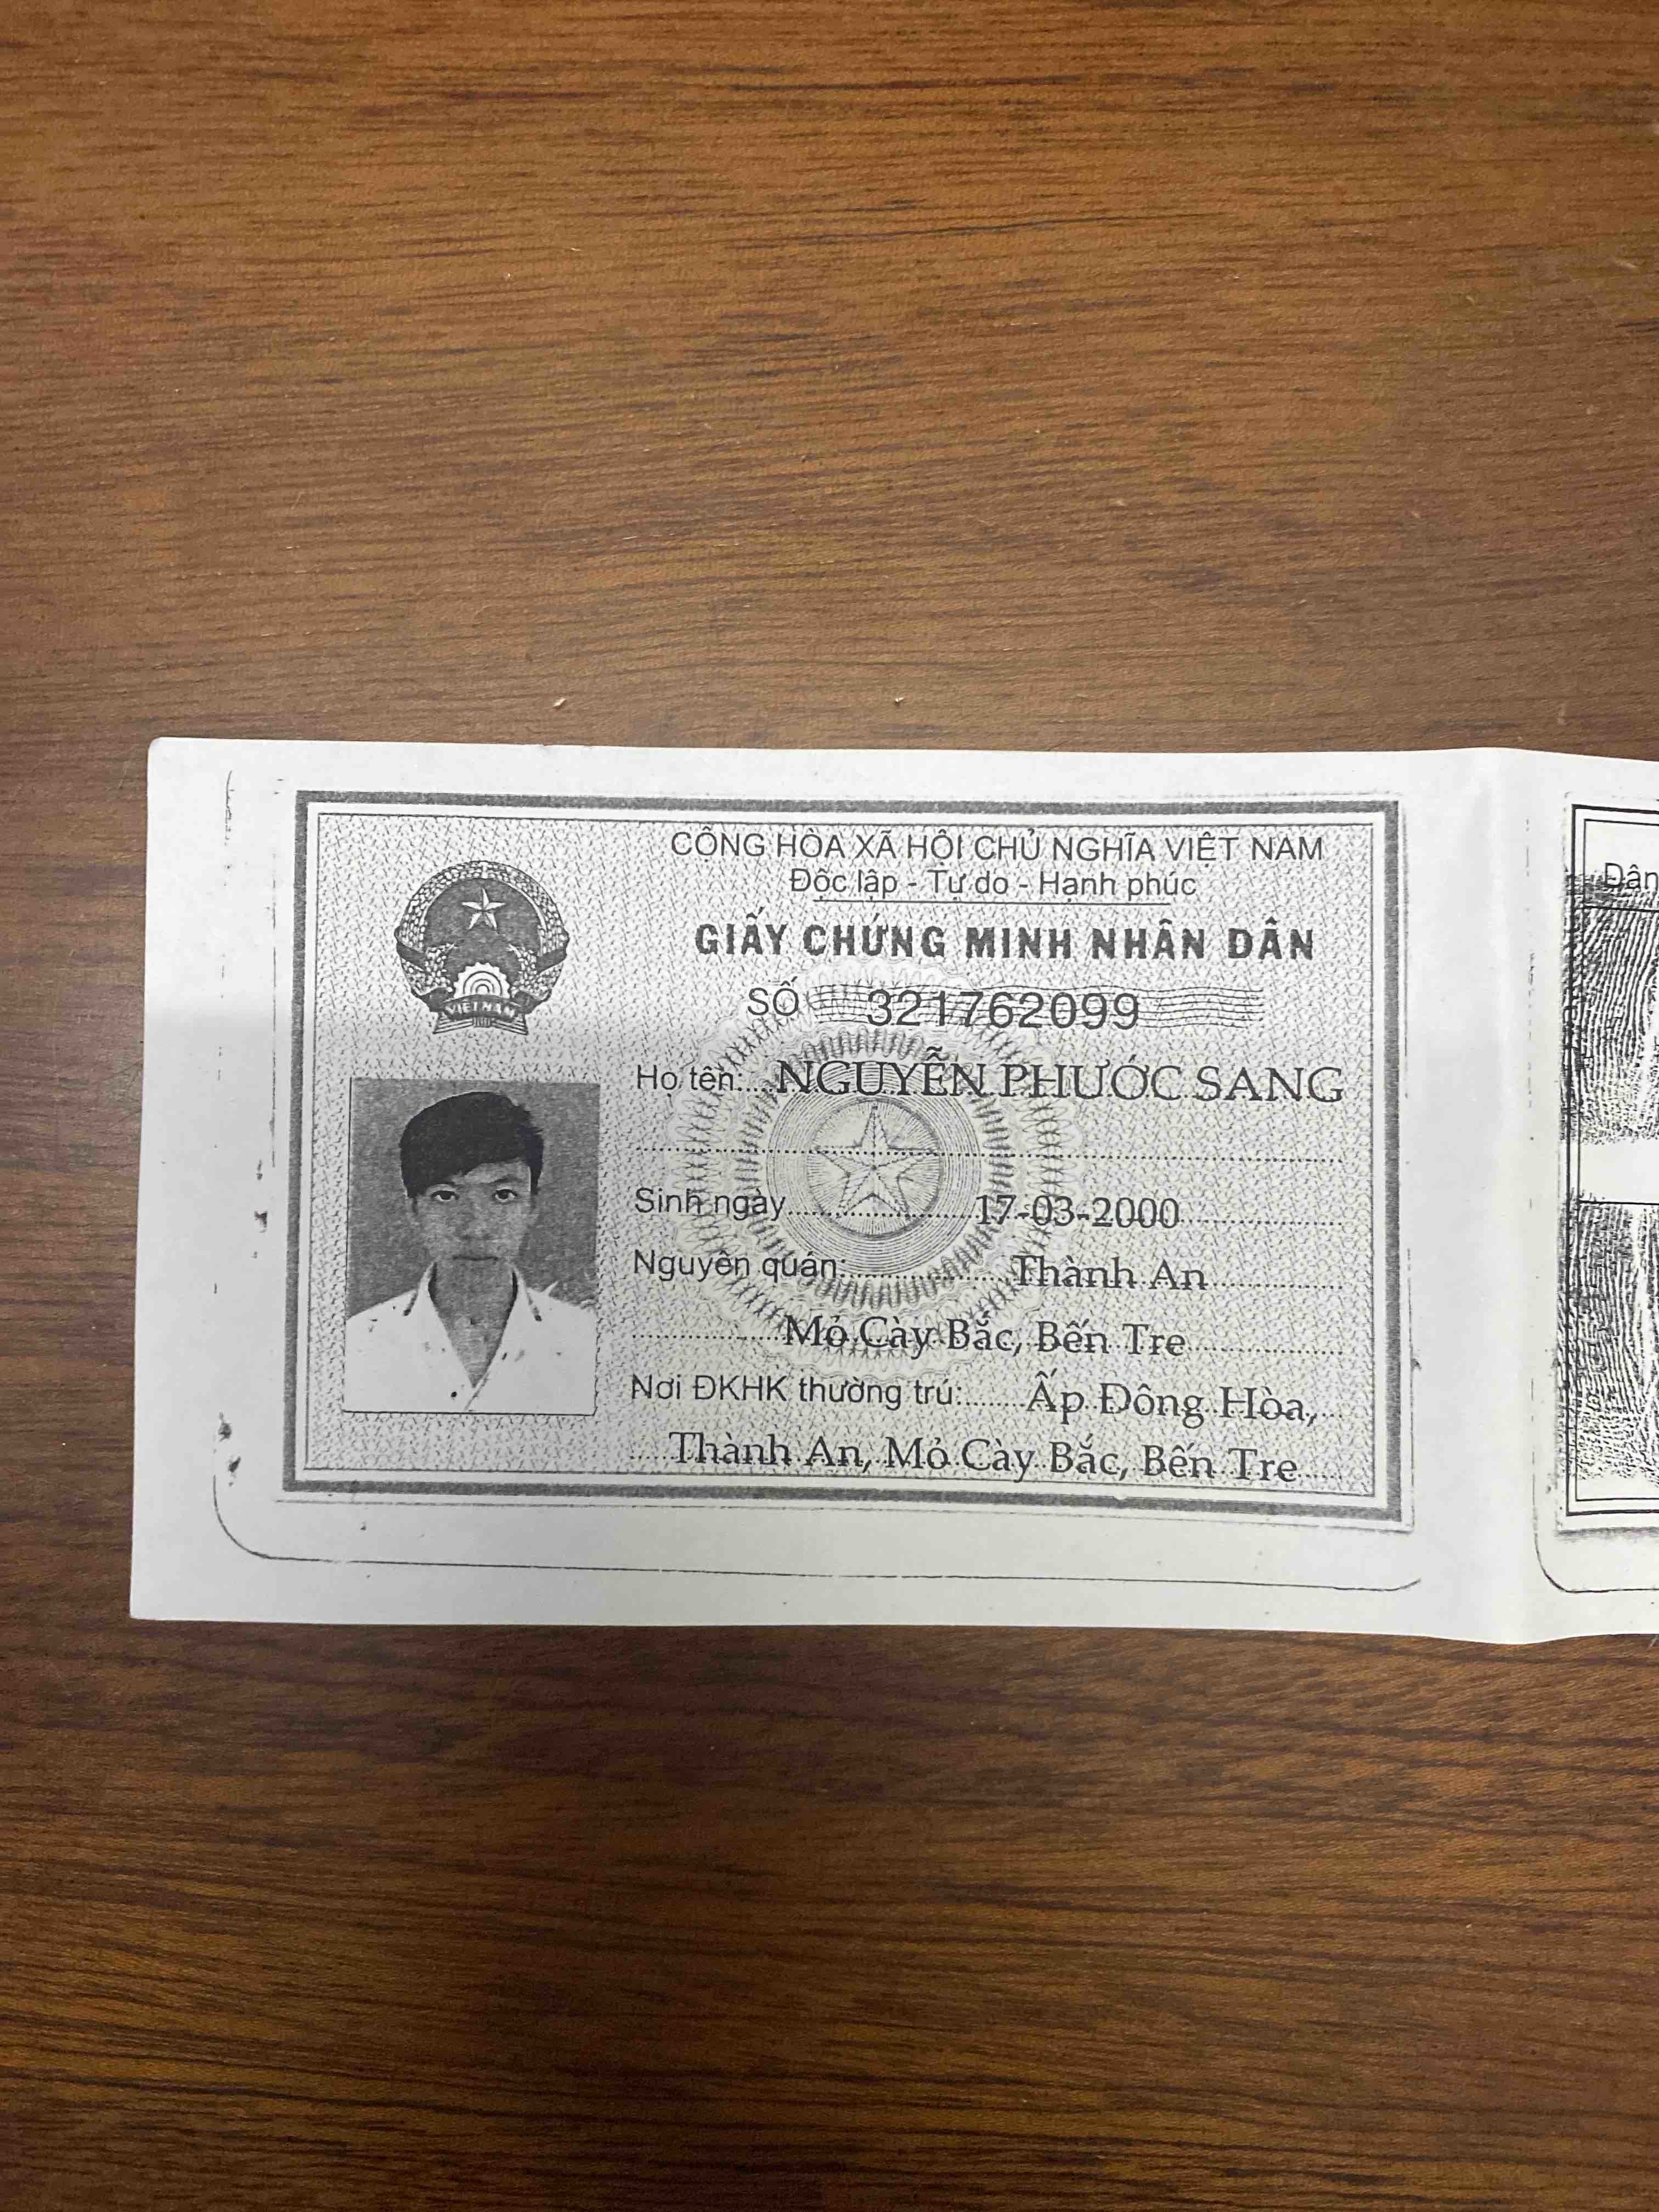 CỘNG HÒA XÃ HỘI CHỦ NGHĨA VIỆT NAM
Độc lập - Tự do - Hạnh phúc
GIẤY CHỨNG MINH NHÂN DÂN
SỐ 321762099
VIỆT NAM
Họ tên: NGUYỄN PHƯỚC SANG
Sinh ngày 17-03-2000
Nguyên quán: Thành An
Mỏ Cày Bắc, Bến Tre
Nơi ĐKHK thường trú: Ấp Đông Hòa,
Thành An, Mỏ Cày Bắc, Bến Tre
Dân